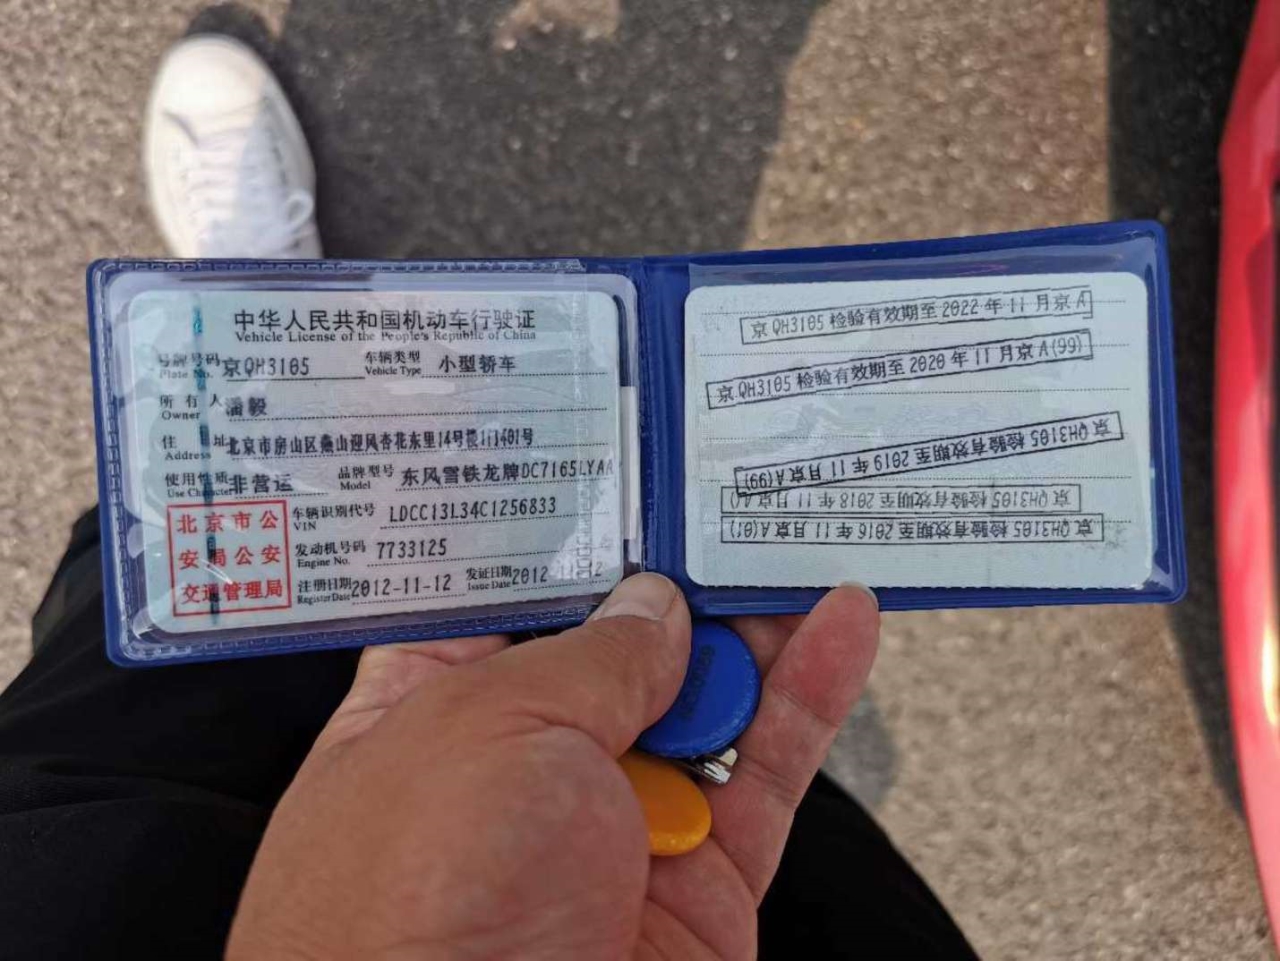 中华人民共和国机动车行驶证
Vehicle License of the People's Republic of China
号牌号码 Plate No. 京QH3105 车辆类型 Vehicle Type 小型轿车
所有人 Owner 潘毅
住址 Address 北京市房山区燕山迎风杏花东里14号楼1门401号
使用性质 Use Character 非营运 品牌型号 Model 东风雪铁龙牌DC7165LYAA
北京市公
安局公安
交通管理局
车辆识别代号 VIN LDCC13L34C1256833
发动机号码 Engine No. 7733125
注册日期 Register Date 2012-11-12 发证日期 Issue Date 2012
京QH3105 检验有效期至 2022 年 11 月京A
京QH3105 检验有效期至 2020 年 11 月京A(99)
京QH3105 检验有效期至 2019 年 11 月京A(99)
京QH3105 检验有效期至 2018 年 11 月京A
京QH3105 检验有效期至 2016 年 11 月京A(01)